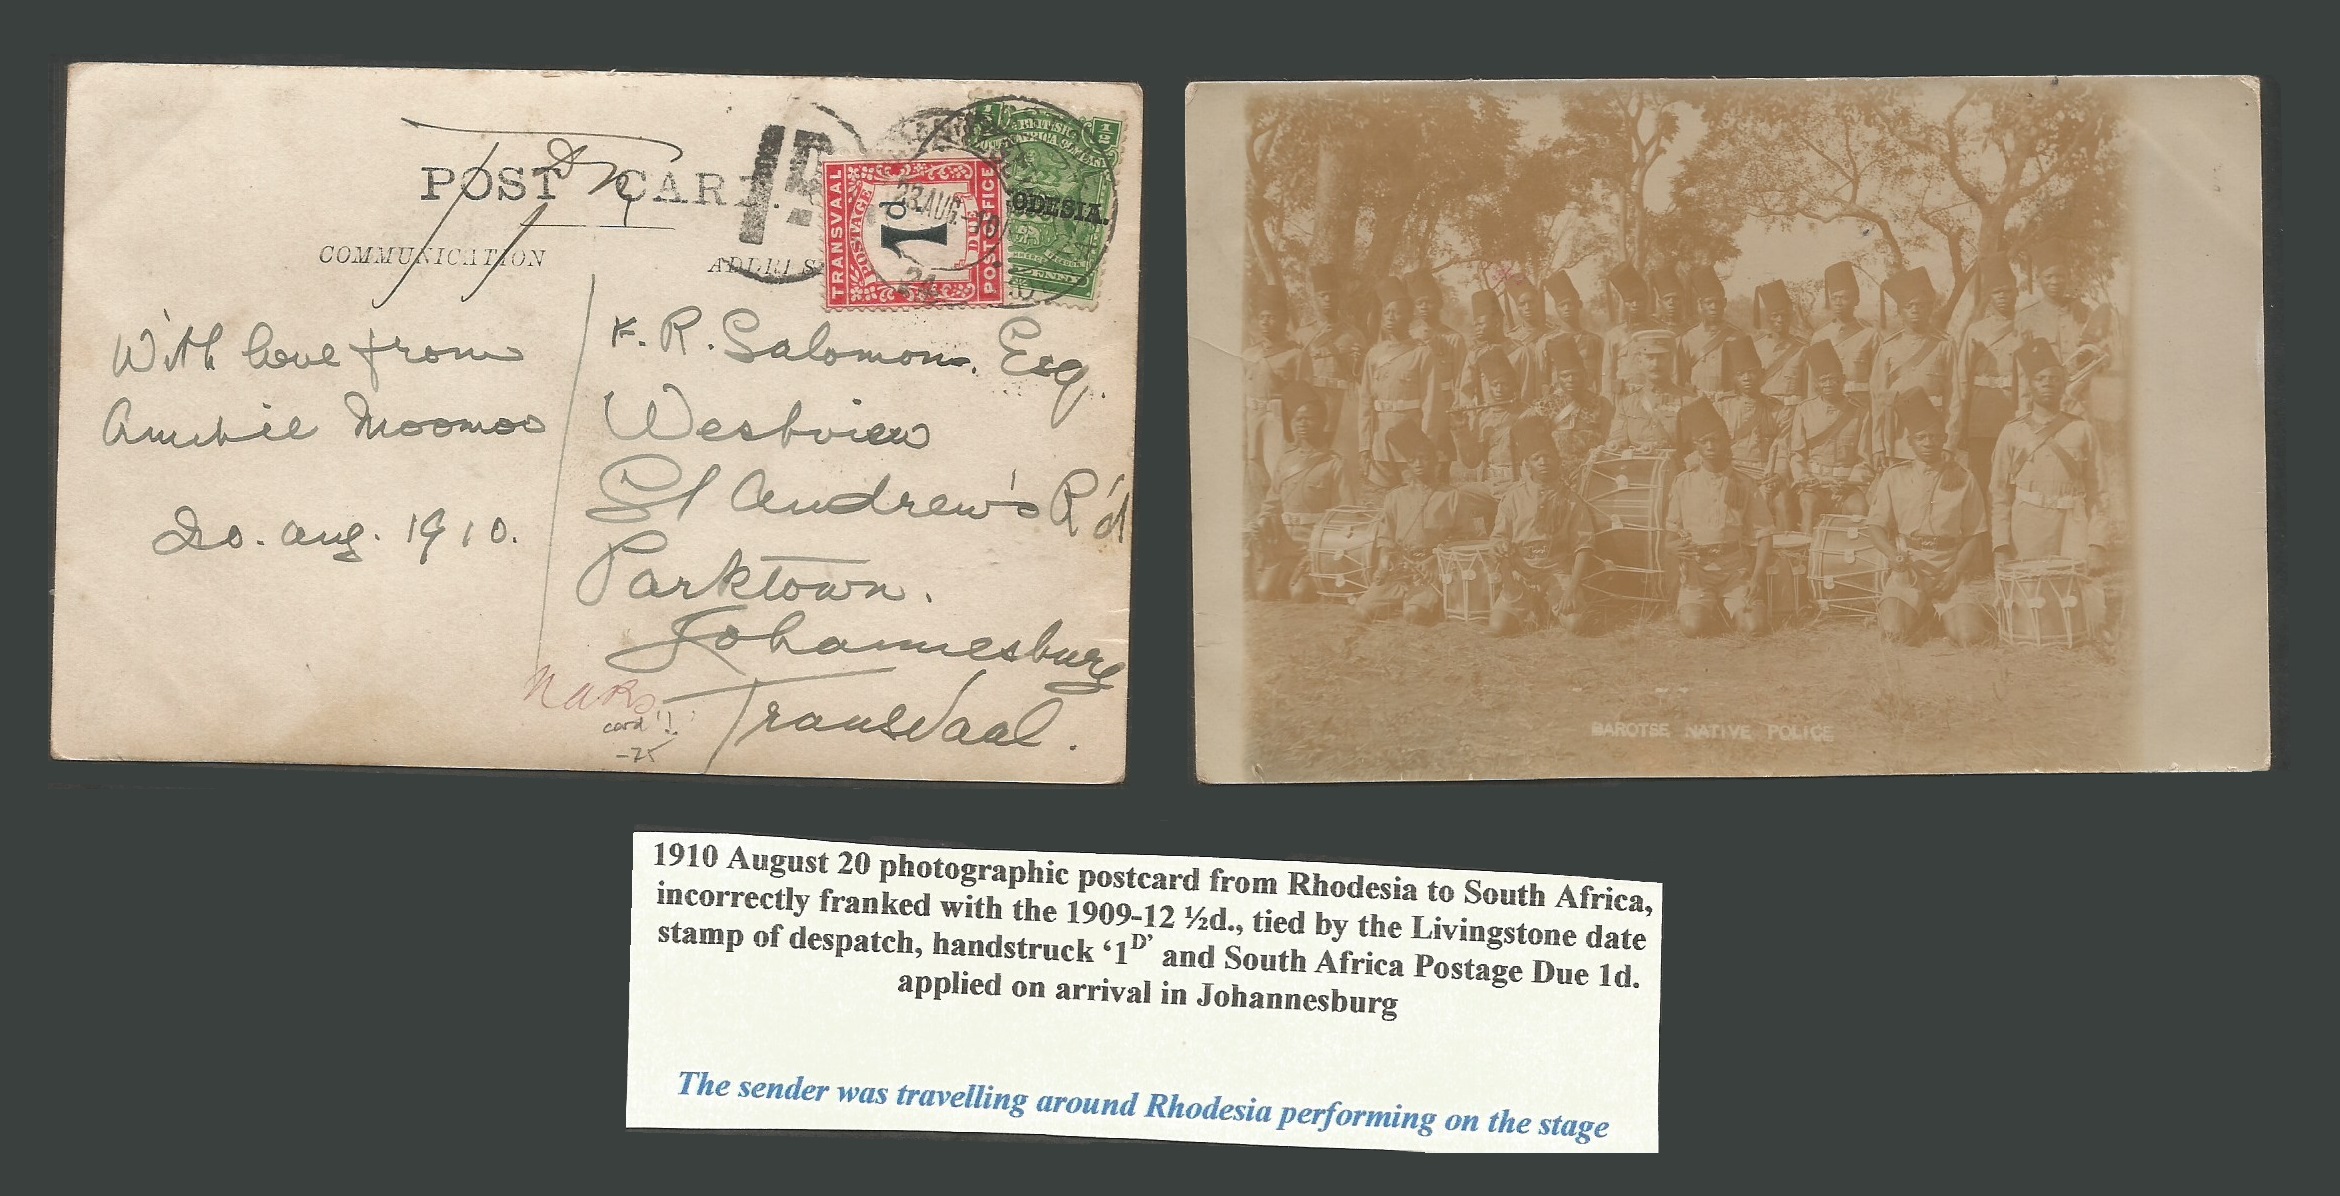 POST CARD.
COMMUNICATION
1D
TRANSVAAL
POSTAGE
DUE
POST OFFICE
1d
½
½
ODESIA.
PENNY
23 AUG 10
With love from
Moomoo
20. Aug. 1910.
F. R. Salomon. Esq.
Westview
St Andrew's R'd
Parktown.
Johannesburg
Transvaal.
card!!
-75
BAROTSE NATIVE POLICE
1910 August 20 photographic postcard from Rhodesia to South Africa,
incorrectly franked with the 1909-12 ½d., tied by the Livingstone date
stamp of despatch, handstruck ‘1D’ and South Africa Postage Due 1d.
applied on arrival in Johannesburg
The sender was travelling around Rhodesia performing on the stage